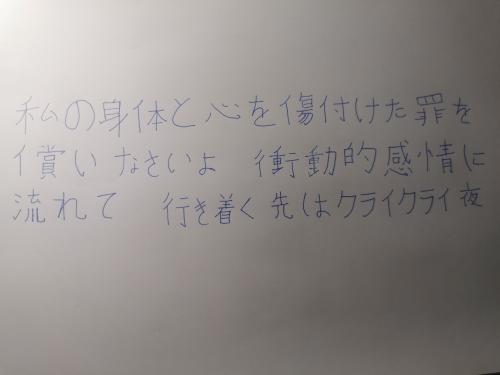 私の身体と心を傷付けた罪を
償いなさいよ 衝動的感情に
流れて 行き着く先はクライクライ夜